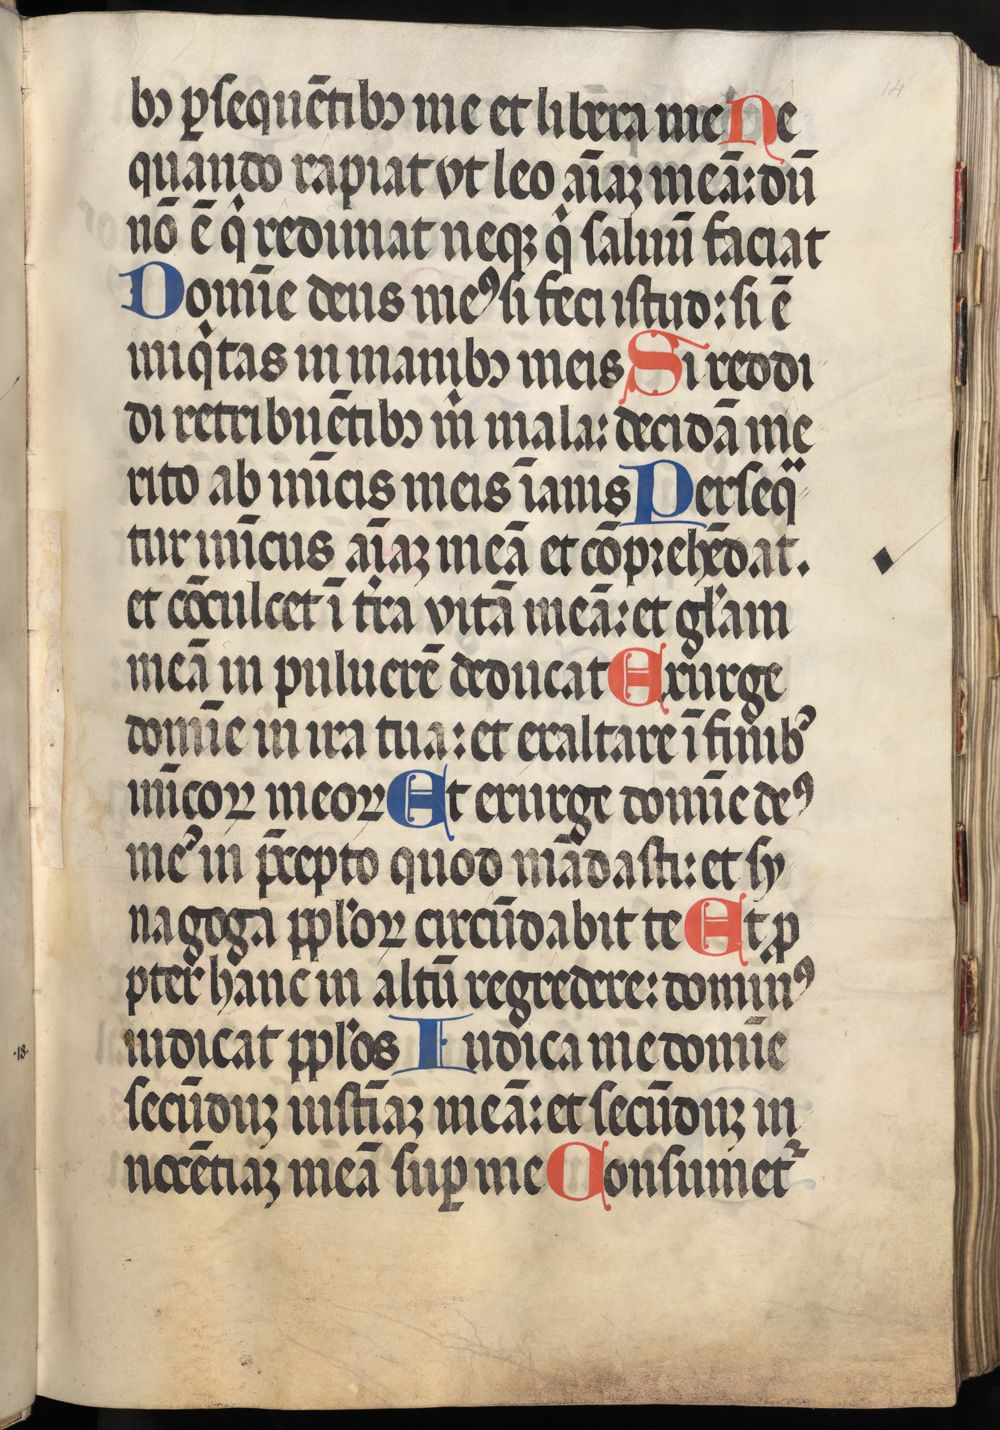 bꝯ ꝑsequētibꝯ me et libera me Ne
quando rapiat vt leo aīaꝫ meā: dū
nō ē qͥ redimat neqꝫ qͥ saluū faciat
Domīe deus meꝰ si feci istud: si ē
iniqͥtas in manibꝯ meis Si reddi
di retribuētibꝯ m̄ mala: decidā me
rito ab inīcis meis īanis Perseq̈
tur inīcus aīaꝫ meā et cōprehēdat.
et cōculcet ī tr̄a vitā meā: et glaꝫm
meā in puluerē deducat Exurge
domīe in ira tua: et exaltare ī finibꝰ
inīcoꝝ meoꝝ Et exurge domīe deꝰ
meꝰ in p̄cepto quod mādasti: et sy
nagoga ppl'oꝝ circūdabit te Et ꝓ
pter hanc in altū regredere: dominꝰ
iudicat ppl'os Iudica me domīe
secūduꝫ iustīaꝫ meā: et secūduꝫ in
nocētiaꝫ meā suꝑ me Consumet᷑
14
·18·